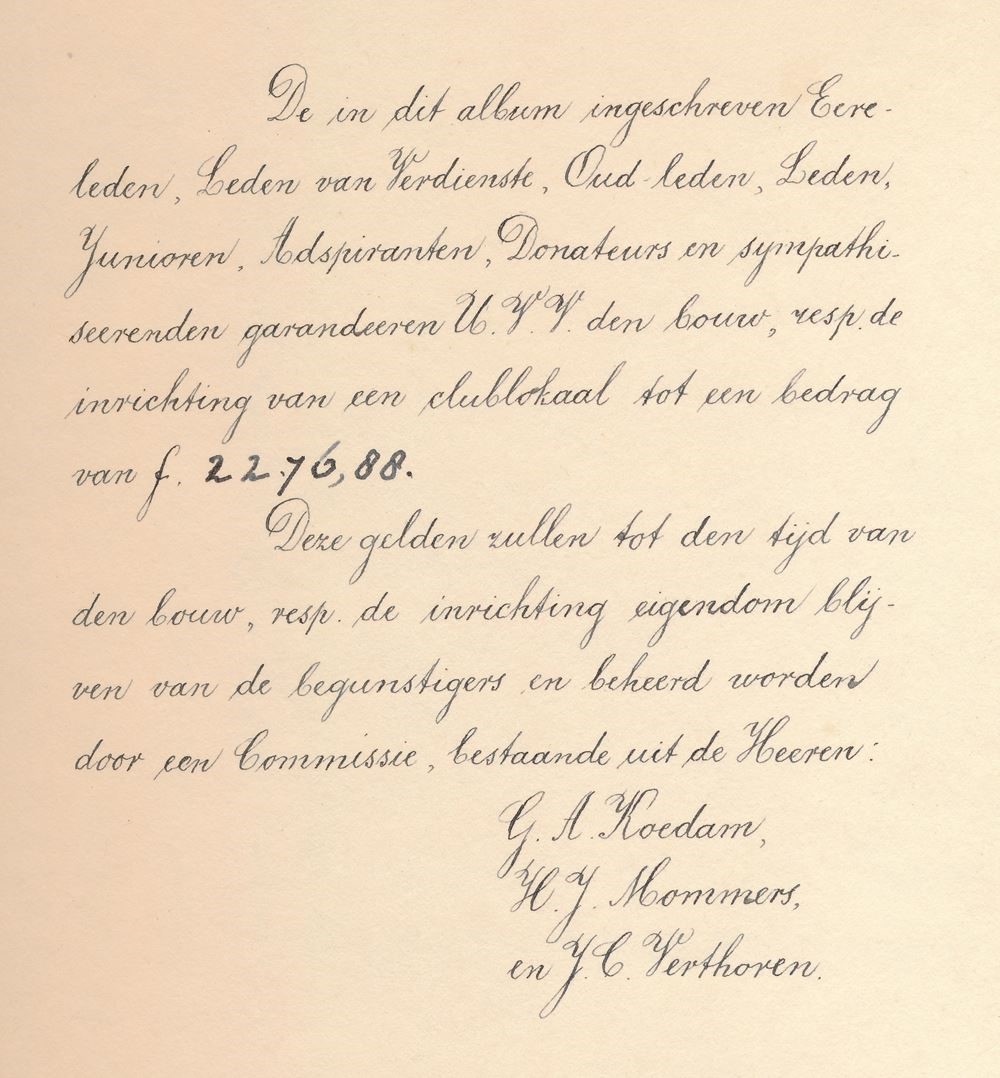 De in dit album ingeschreven Eere-
leden, Leden van Verdienste, Oud-leden, Leden,
Junioren, Adspiranten, Donateurs en sympathi-
seerenden garandeeren U.V.V. den bouw, resp. de
inrichting van een clublokaal tot een bedrag
van f. 2276,88.
Deze gelden zullen tot den tijd van
den bouw, resp. de inrichting eigendom blij-
ven van de begunstigers en beheerd worden
door een Commissie, bestaande uit de Heeren:
G. A. Koedam,
H. J. Mommers,
en J. C. Verthoren.